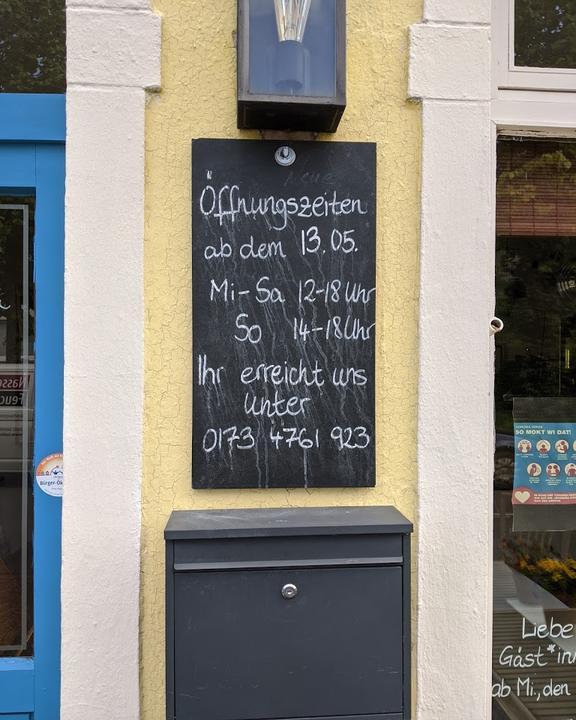 Öffnungszeiten
ab dem 13.05.
Mi-Sa 12-18 Uhr
So 14-18 Uhr
Ihr erreicht uns
unter
0173 4761 923
SO MOKT WI DAT!
Bürger-Ök
Liebe
Gäst*in
ab Mi., den